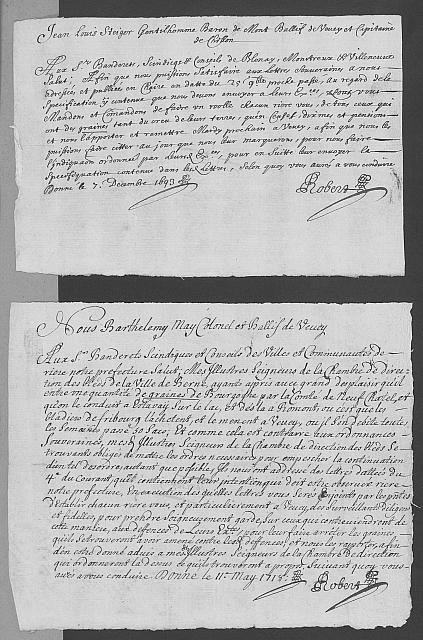 Jean Louis Steiger Gentilhomme Baron de Mont Ballif de Vevey et Capitaine
de Chillon
Aux Srs Banderets, Scindiqs & Conseils de Blonay, Montreux & Villeneuve
Salut; Affin que nous puissions satisfaire aux lettres souveraines a nous
adressées et publiées en Chaire en datte du 25 9bre proche passe, au regard de la
Specification y contenue que nous devons envoyer a leurs Exces, Nous vous
Mandons et Commandons de faire un rolle chacun riere vous, de tous ceux qui
ont des graines tant du creu de leurs terres, qu'en Censes, dixmes et pensions
et nous l'apporter et remettre Mardy prochain a Vevey, afin que nous les
puissions faire citter au jour que nous leur marquerons, pour nous faire
l'Indiquation ordonnee par leurs Exces, pour en suitte leur envoyer la
Specifiquation contenue dans les Lettres, Selon quoy vous aures a vous conduire
Donné le 7. Decembre 1693
Robert
Nous Barthelemy May Colonel et Ballif de Vevey
Aux Srs Banderets Scindiques et Conseils des Villes et Communautes de
riere notre prefecture Salut, Mes Illustres Seigneurs de la Chambre de direc
tion des Bleds de la Ville de Berne, ayants appris avec grand desplaisir qu'il
entre une quantité de graines de Bourgogne par la Comté de Neuf Chatel, et
qu'on le conduit a Estavay Sur le lac, et des la a Romont, ou est que les
bladiers de fribourg l'achedent, et le menent a Vevey, ou il s'en debite toutes
les Semaines
Et Comme cela est contraire aux ordonnances
Souveraines, mesd Illustres Seigneurs de la Chambre de direction des Bleds Se
trouvants obligés de mettre les ordres necessaires pour empescher la continuation
d'un tel desordre, autant que possible, Ils nous ont addressé des lettres dattées du
4e du Courant, qu'ils contiennent leur intention qui doit etre observée riere
notre prefecture, En execution desquelles lettres vous Seres
d'Establir chacun riere vous, et particulierement a Vevey, des Surveillants diligens
et fidelles, pour prendre Soigneusement garde, Sur ceux que contreviendront de
cette maniere, aux deffences de Leurs Exces, pour leur faire arreter les graines
qu'il se trouveront avoir amené contre les deffences, et nous les rapporter, afin
d'en estre donné advis a mesd Illustres Seigneurs de la Chambre de direction
qui ordonneront la dessus ce qu'ils trouveront a propos, Suivant quoy vous
aures a vous conduire Donné le 11e May 1715
Robert